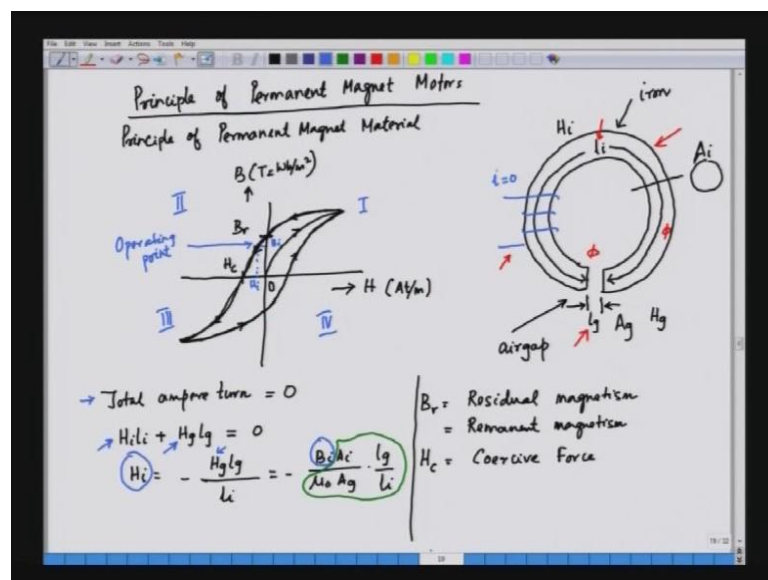 File Edit View Insert Actions Tools Help
Principle of Permanent Magnet Motors
Principle of Permanent Magnet Material
B (T=Wb/m²)
II
I
Br
Bi
Operating point
Hc
Hi
0
H (At/m)
III
IV
iron
Hi
li
Ai
i=0
ϕ
ϕ
lg
Ag
Hg
airgap
→ Total ampere turn = 0
Hili + Hglg = 0
Hi = - Hglg / li = - BiAi / μ0 Ag · lg / li
Br = Residual magnetism
= Remanent magnetism
Hc = Coercive Force
19